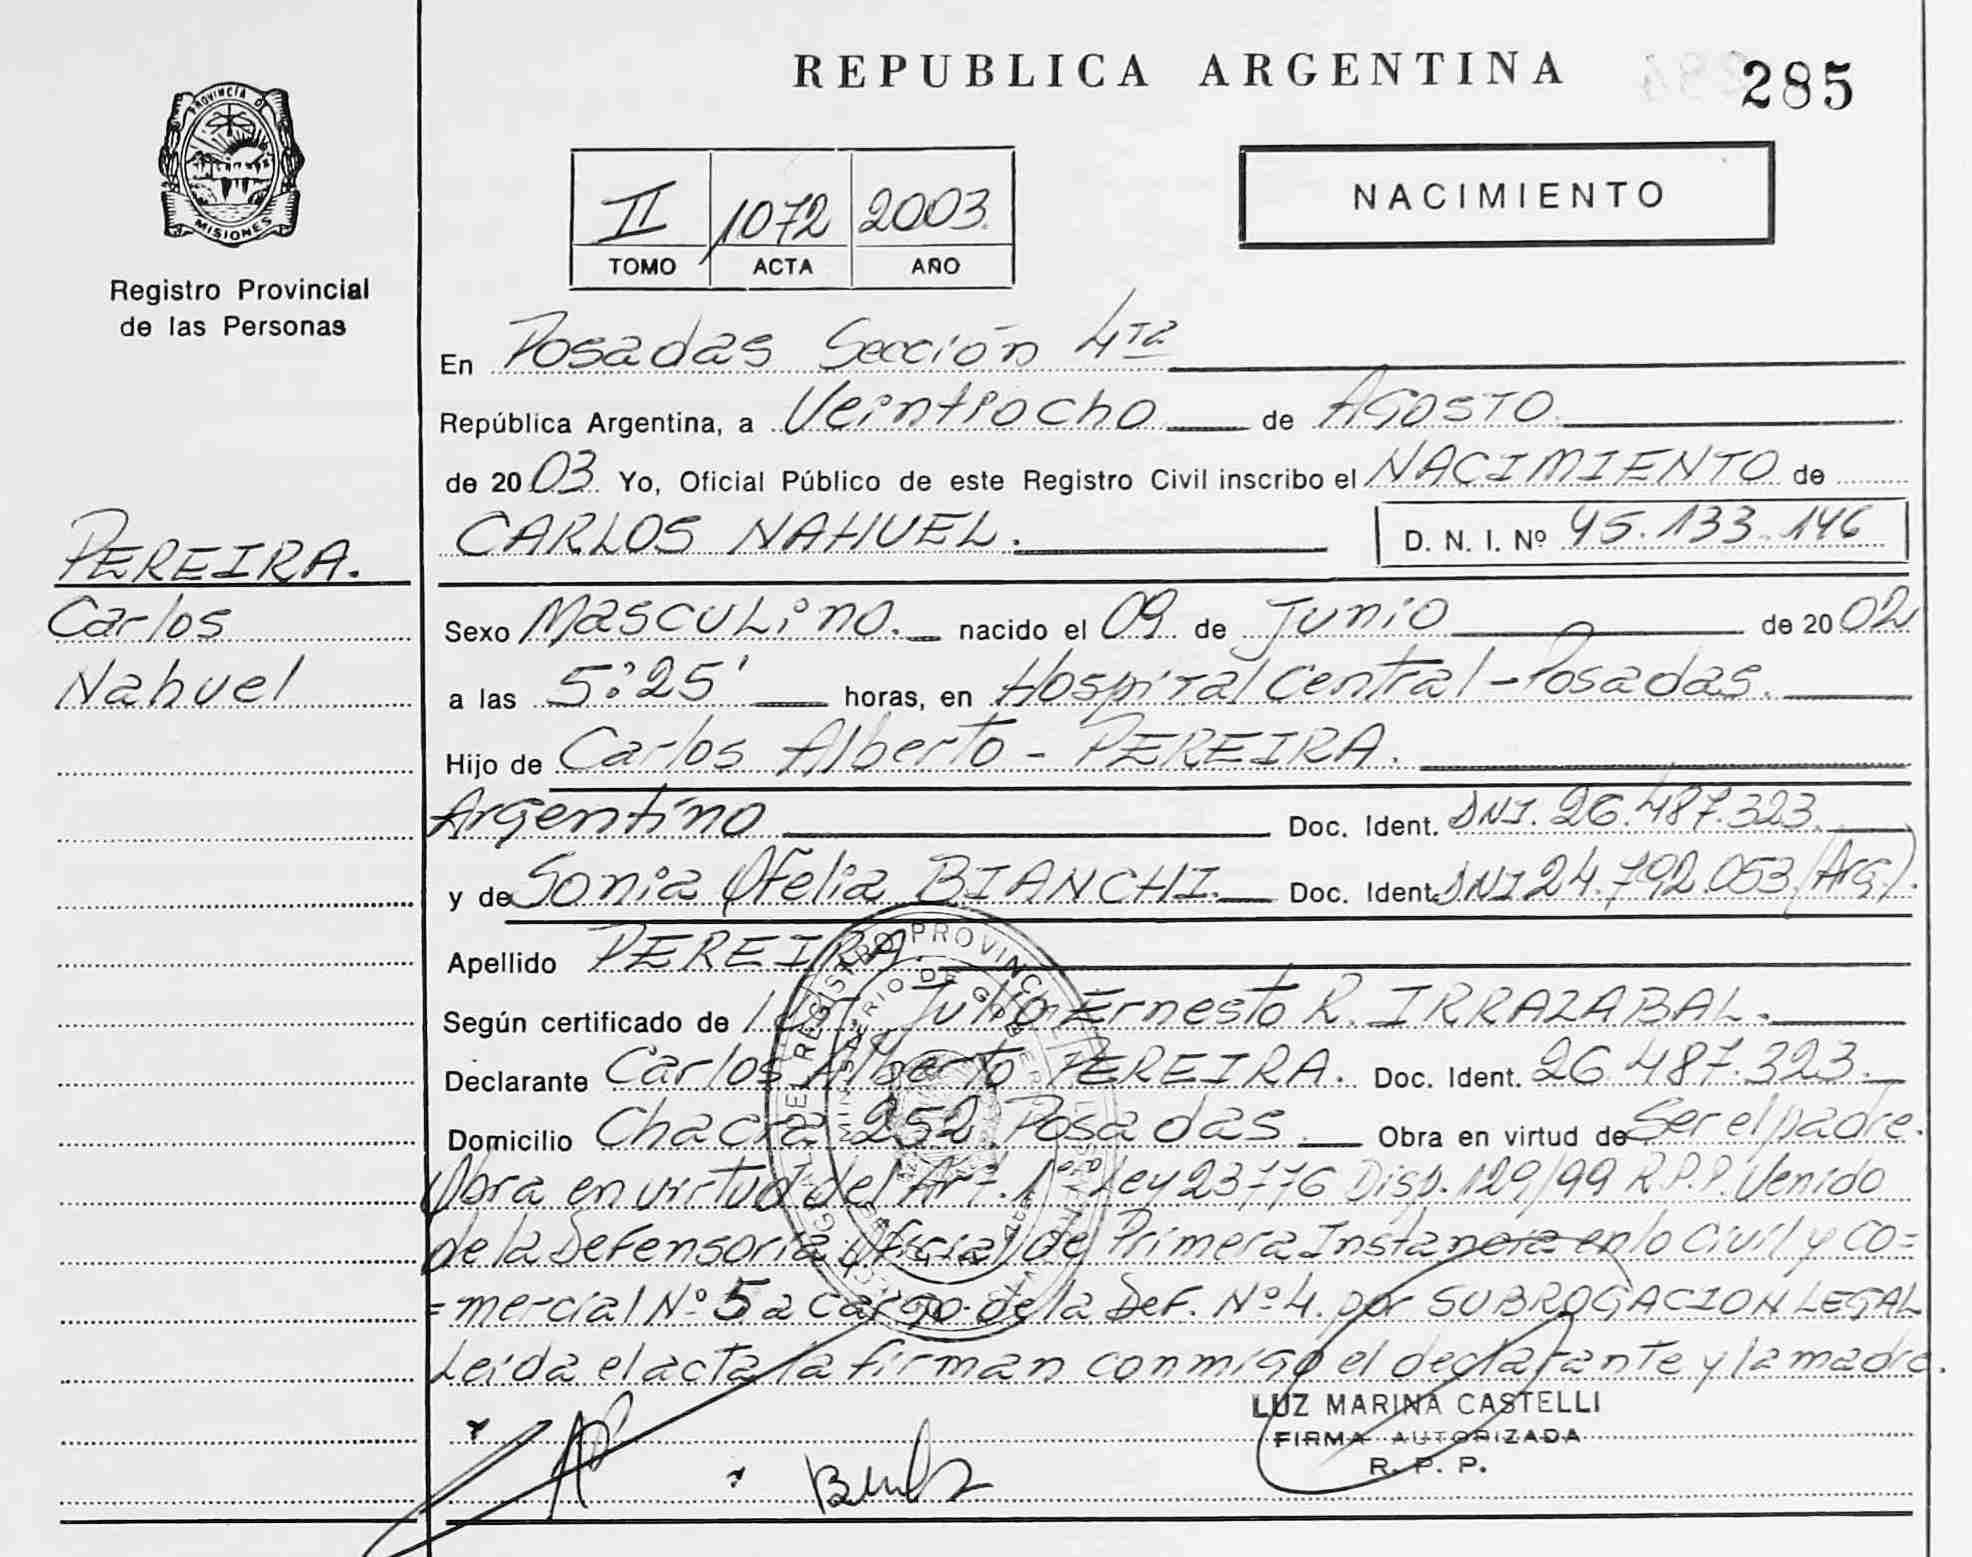 REPUBLICA ARGENTINA
285
PROVINCIA DE
MISIONES
Registro Provincial
de las Personas
NACIMIENTO
II 1072 2003.
TOMO ACTA AÑO
En Posadas Sección 4ta
República Argentina, a Veintiocho de Agosto
de 2003 Yo, Oficial Público de este Registro Civil inscribo el NACIMIENTO de
CARLOS NAHUEL. D. N. I. Nº 45.133.146
PEREIRA.
Carlos
Nahuel
Sexo Masculino. nacido el 09 de Junio de 2002
a las 5:25' horas, en Hospital Central - Posadas.
Hijo de Carlos Alberto - PEREIRA.
Argentino Doc. Ident. DNI. 26.487.323.
y de Sonia Ofelia BIANCHI. Doc. Ident. DNI 24.792.053 (Arg).
Apellido PEREIRA.
Según certificado de Julio Ernesto R. IRRAZABAL.
Declarante Carlos Alberto PEREIRA. Doc. Ident. 26.487.323.
Domicilio Chacra 252 Posadas. Obra en virtud de Ser el padre.
Obra en virtud del Art. 1º Ley 23776 Disp. 129/99 R.P.P. Venido
de la Defensoria Oficial de Primera Instancia en lo Civil y Co=
=mercial Nº 5 a cargo de la Def. Nº 4. por SUBROGACION LEGAL
Leida el acta la firman conmigo el declarante y la madre.
LUZ MARINA CASTELLI
FIRMA AUTORIZADA
R. P. P.